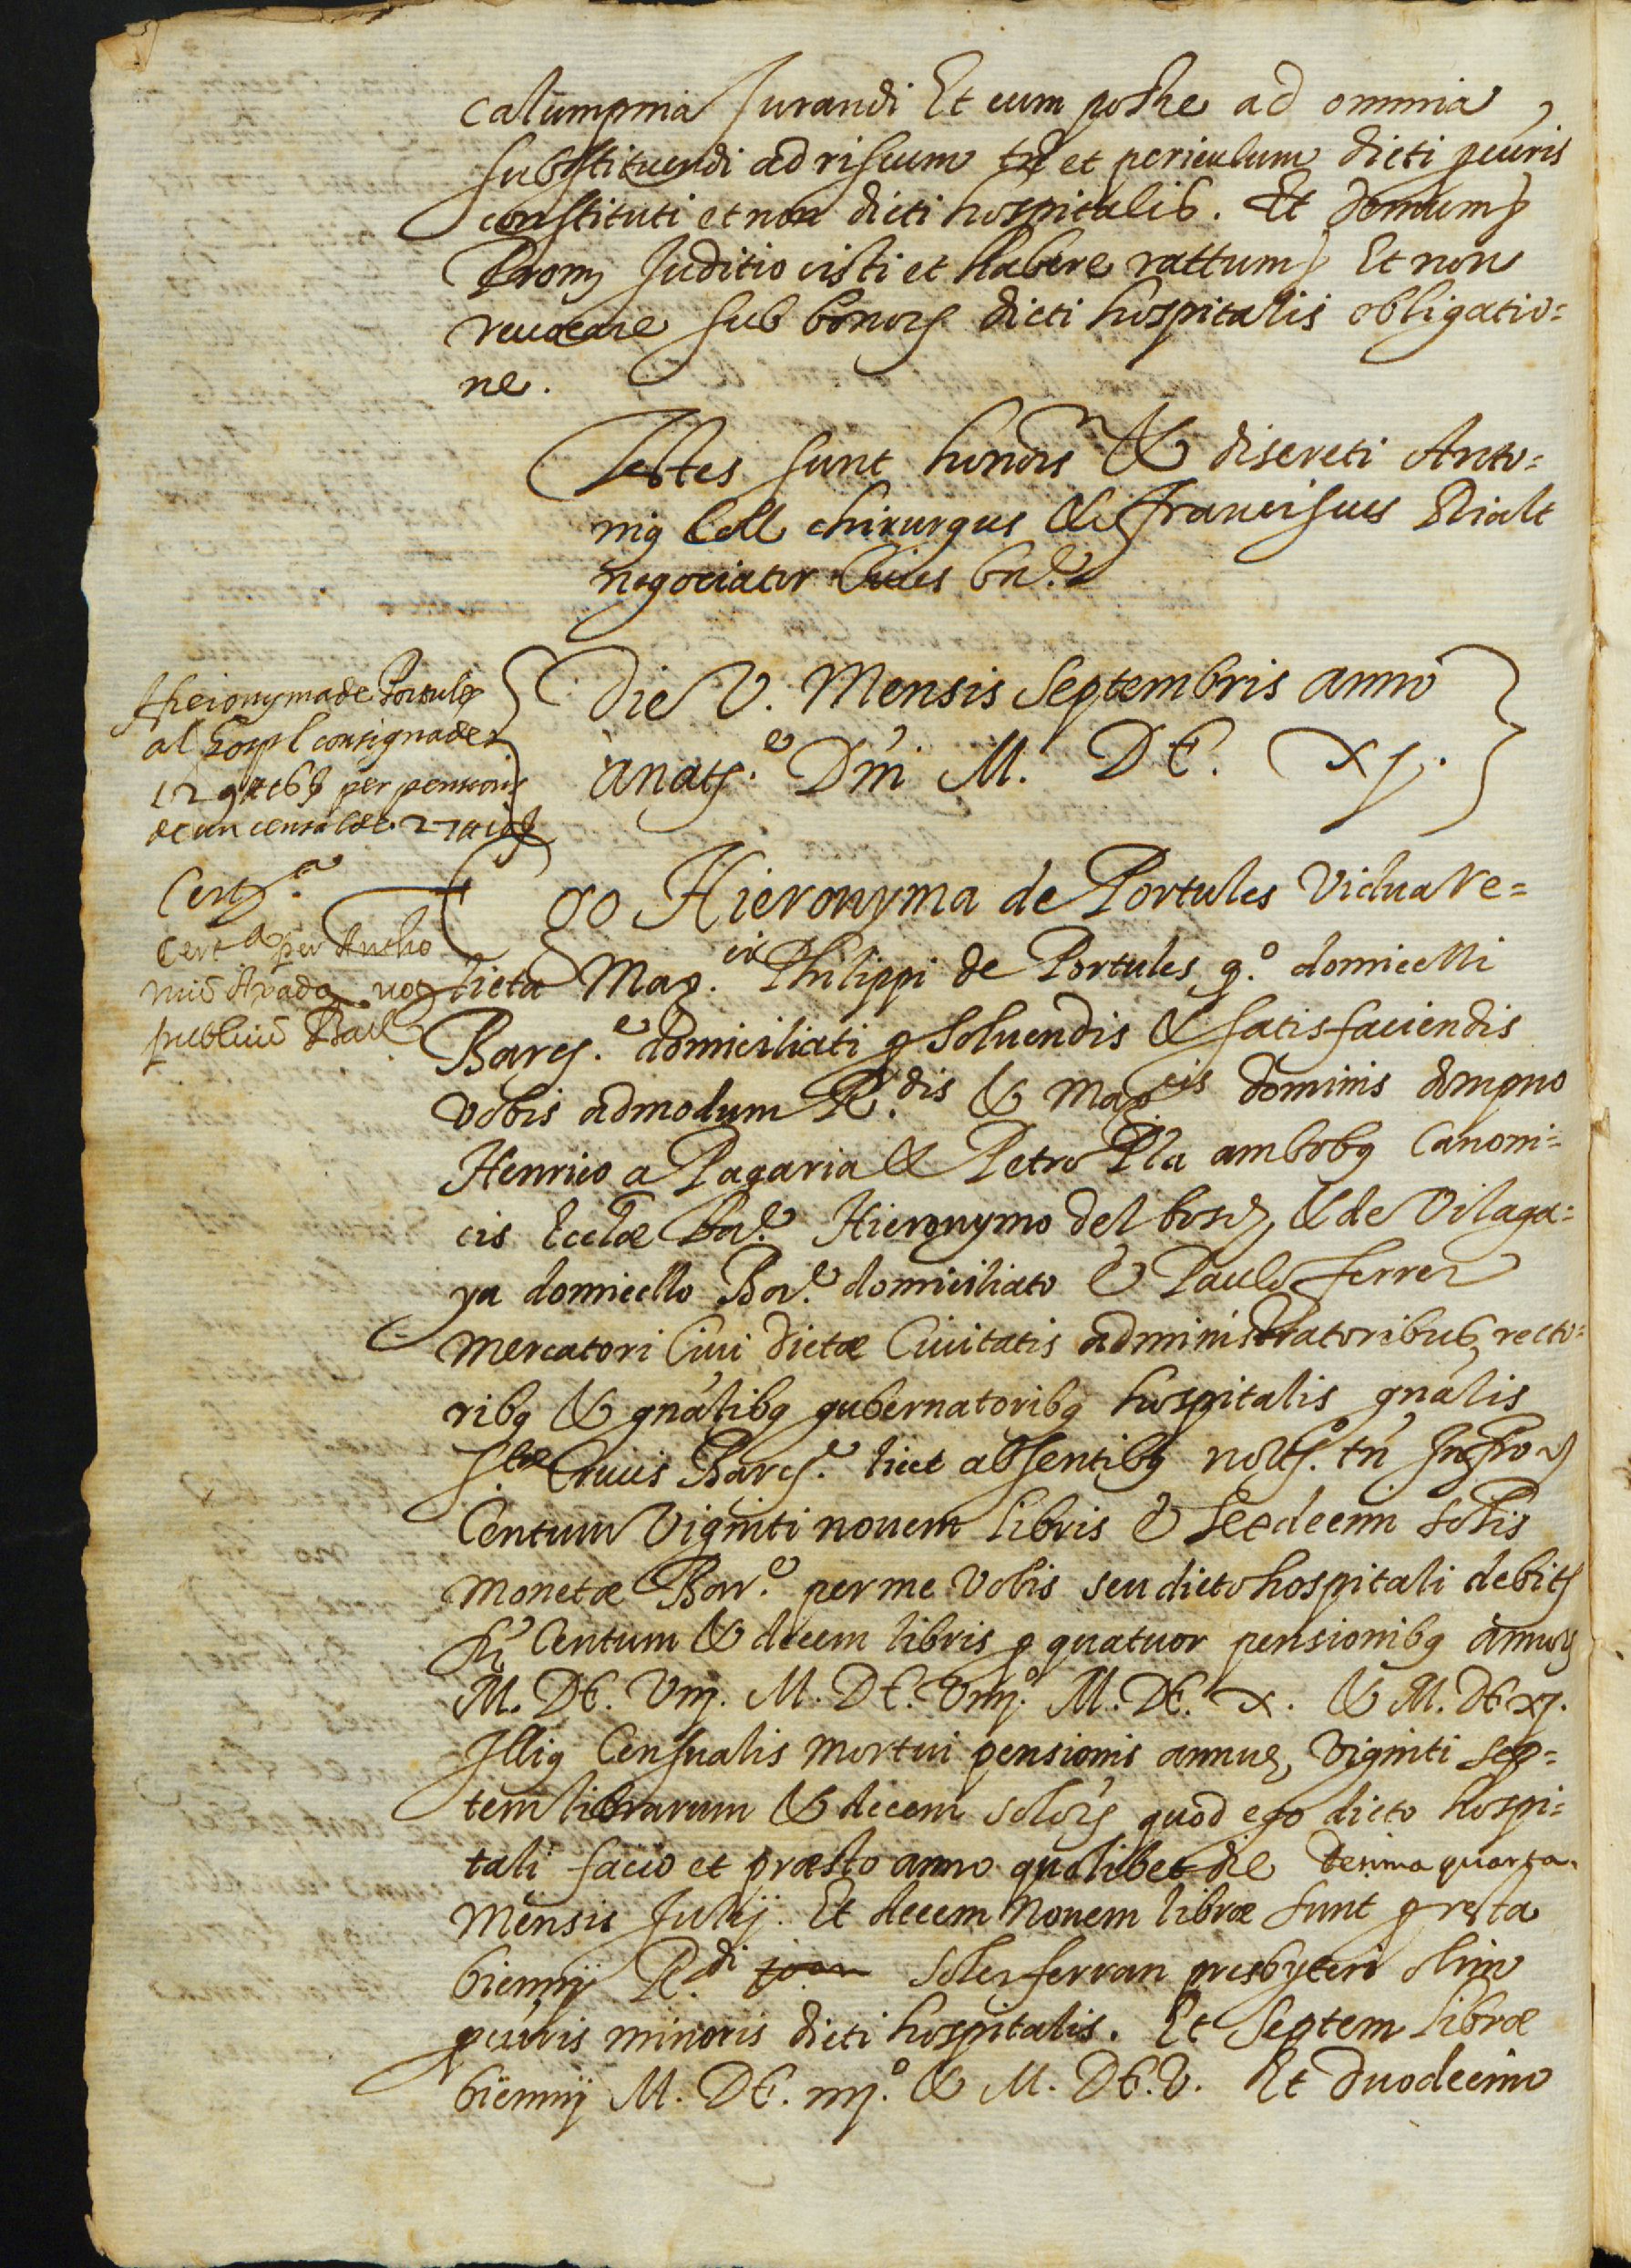 calumpnia Jurandi Et cum poste ad omnia
substituendi ad riscum tñ et periculum dicti pcuris
constituti et non dicti hospitalis. Et demum
Prom Juditio cisti et Habere rattum Et non
reuocare sub bonor dicti hospitalis obligatio=
ne.
Testes sunt honors & discreti Anto=
nig Coll chirurgus & Franciscus Rialt
negociator Ciues bñ.e
Hieronyma de Portules
al hospl consignades
129 ⁋ 16 ß per pensions
de un censal de 27 ⁋ 10 ß
Die V. Mensis Septembris anno
anats.e Dñi M. DC. xj.
Cert.a
Cert.a per Antho
niũ Axada not
publicũ Bar
Ego Hieronyma de Portules Vidua re=
licta Mag.ci Philippi de Portules q.o domicelli
Barcs.e domiciliati p soluendis & satisfaciendis
vobis admodum R.dis & Mag.cis dominis dompno
Henrico a Pagaria & Petro Pla ambobq Canoni=
cis Eccłæ Bar.e Hieronymo del bosch, & de Vilaga=
ya domicello Bar.e domiciliato & Paulo ferrer
mercatori Ciui dictæ Ciuitatis administratoribus, recto=
ribq & gnalibq gubernatoribq hospitalis gnalis
S.tæ Crucis Barcs.e licet absentibq nots. tñ
Centum Viginti nouem libris & sexdecim solis
monetæ Bar.e per me vobis seu dicto hospitali debits
Centum & decem libris p quatuor pensionibq annor
M. DC. Viij. M. DC. Viiij.o M. DC. x. & M. DC xj.
Illiq Censualis mortui pensionis annuæ, viginti sep=
tem librarum & decem solor quod ego dicto hospi=
tali facio et præsto anno quolibet die decima quarta
mensis Julij. Et decem nouem libræ sunt p resta
biennij R.di joan Soler ferran presbyteri olim
pcuris minoris dicti hospitalis. Et septem libræ
biennij M. DC. iiij.o & M. DC. V. Et duodecim